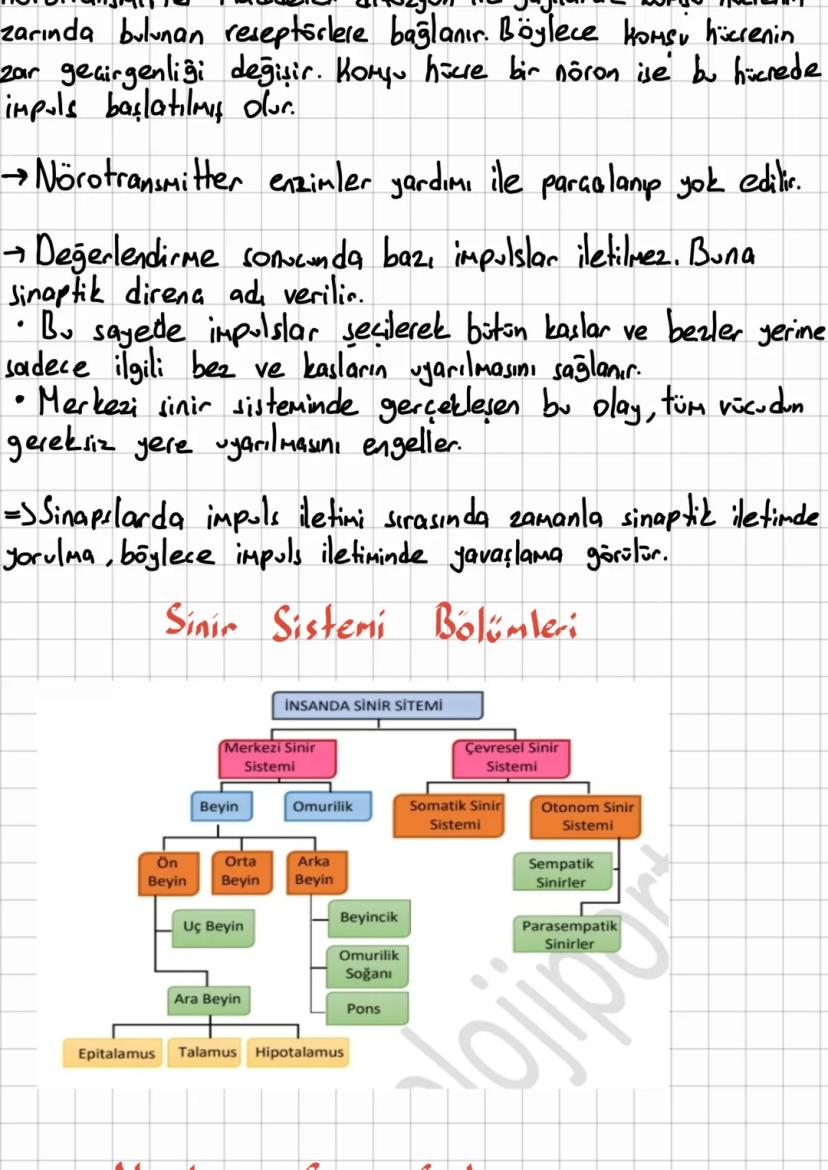 zarında bulunan reseptörlere bağlanır. Böylece komşu hücrenin
zar geçirgenliği değişir. Komşu hücre bir nöron ise bu hücrede
impuls başlatılmış olur.
→ Nörotransmitter enzimler yardımı ile parçalanıp yok edilir.
→ Değerlendirme sonucunda bazı impulslar iletilmez. Buna
sinaptik direnç adı verilir.
• Bu sayede impulslar seçilerek bütün kaslar ve bezler yerine
sadece ilgili bez ve kasların uyarılmasını sağlanır.
• Merkezi sinir sisteminde gerçekleşen bu olay, tüm vücudun
gereksiz yere uyarılmasını engeller.
=> Sinapslarda impuls iletimi sırasında zamanla sinaptik iletimde
yorulma, böylece impuls iletiminde yavaşlama görülür.
Sinir Sistemi Bölümleri
İNSANDA SİNİR SİTEMİ
Merkezi Sinir
Sistemi
Çevresel Sinir
Sistemi
Beyin
Omurilik
Somatik Sinir
Sistemi
Otonom Sinir
Sistemi
Ön
Beyin
Orta
Beyin
Arka
Beyin
Sempatik
Sinirler
Uç Beyin
Beyincik
Parasempatik
Sinirler
Omurilik
Soğanı
Ara Beyin
Pons
Epitalamus
Talamus
Hipotalamus